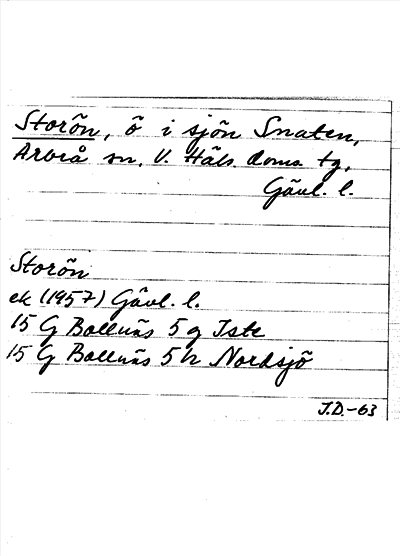 Storön, ö i sjön Snaten,
Arbrå sn, V. Häls. doms. tg,
Gävl. l.
Storön
ek (1957) Gävl. l.
15 G Bollnäs 5 g Iste
15 G Bollnäs 5 h Nordsjö
J.D.-63